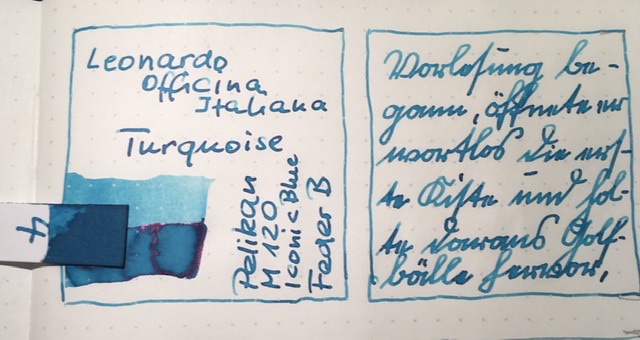 Leonardo
Officina
Italiana
Turquoise
Pelikan
M 120
Iconic Blue
Feder B
4
Verlosung be-
gann, öffnete er
wortlos die ers-
te Kiste und hol-
te daraus Golf-
bälle hervor.